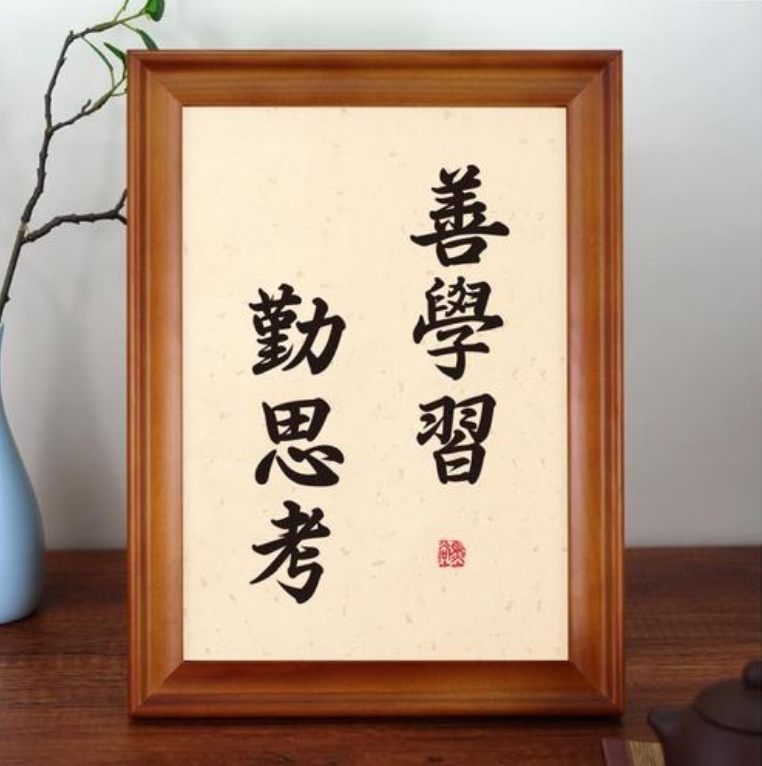 善學習
勤思考